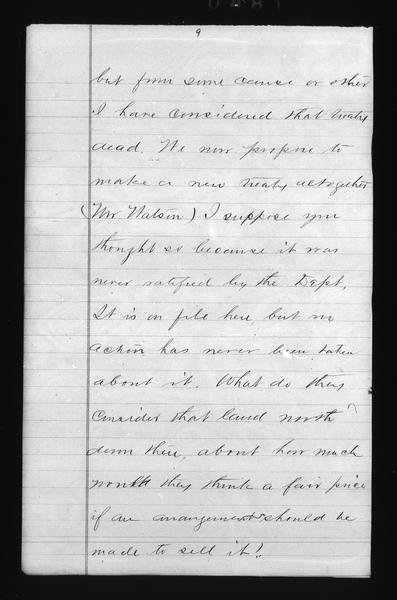 9
but from some cause or other
I have considered that treaty
dead. We now propose to
make a new treaty altogether
(Mr Watson) I suppose you
thought so because it was
never ratified by the Dept.
It is on file here but no
action has never been taken
about it. What do they
consider that land worth
down there, about how much
would they think a fair price
if an arrangement should be
made to sell it?